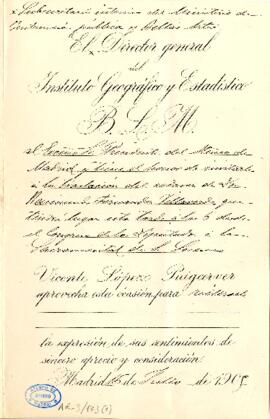 y Subsecretario interino del Ministerio de
Instrucción pública y Bellas Artes
El Director general
del
Instituto Geográfico y Estadístico
B. L. M.
al Excmo Sr. Presidente del Ateneo de
Madrid y tiene el honor de invitarle
á la traslación del cadáver del Sr.
Navarro Villoslada que
tendrá lugar esta tarde á las 6 desde
el Congreso de los Diputados á la
Sacramental de S. Lorenzo
Vicente López Puigcerver
aprovecha esta ocasión para reiterarle
la expresión de sus sentimientos de
sincero aprecio y consideración.
Madrid 15 de Julio de 190